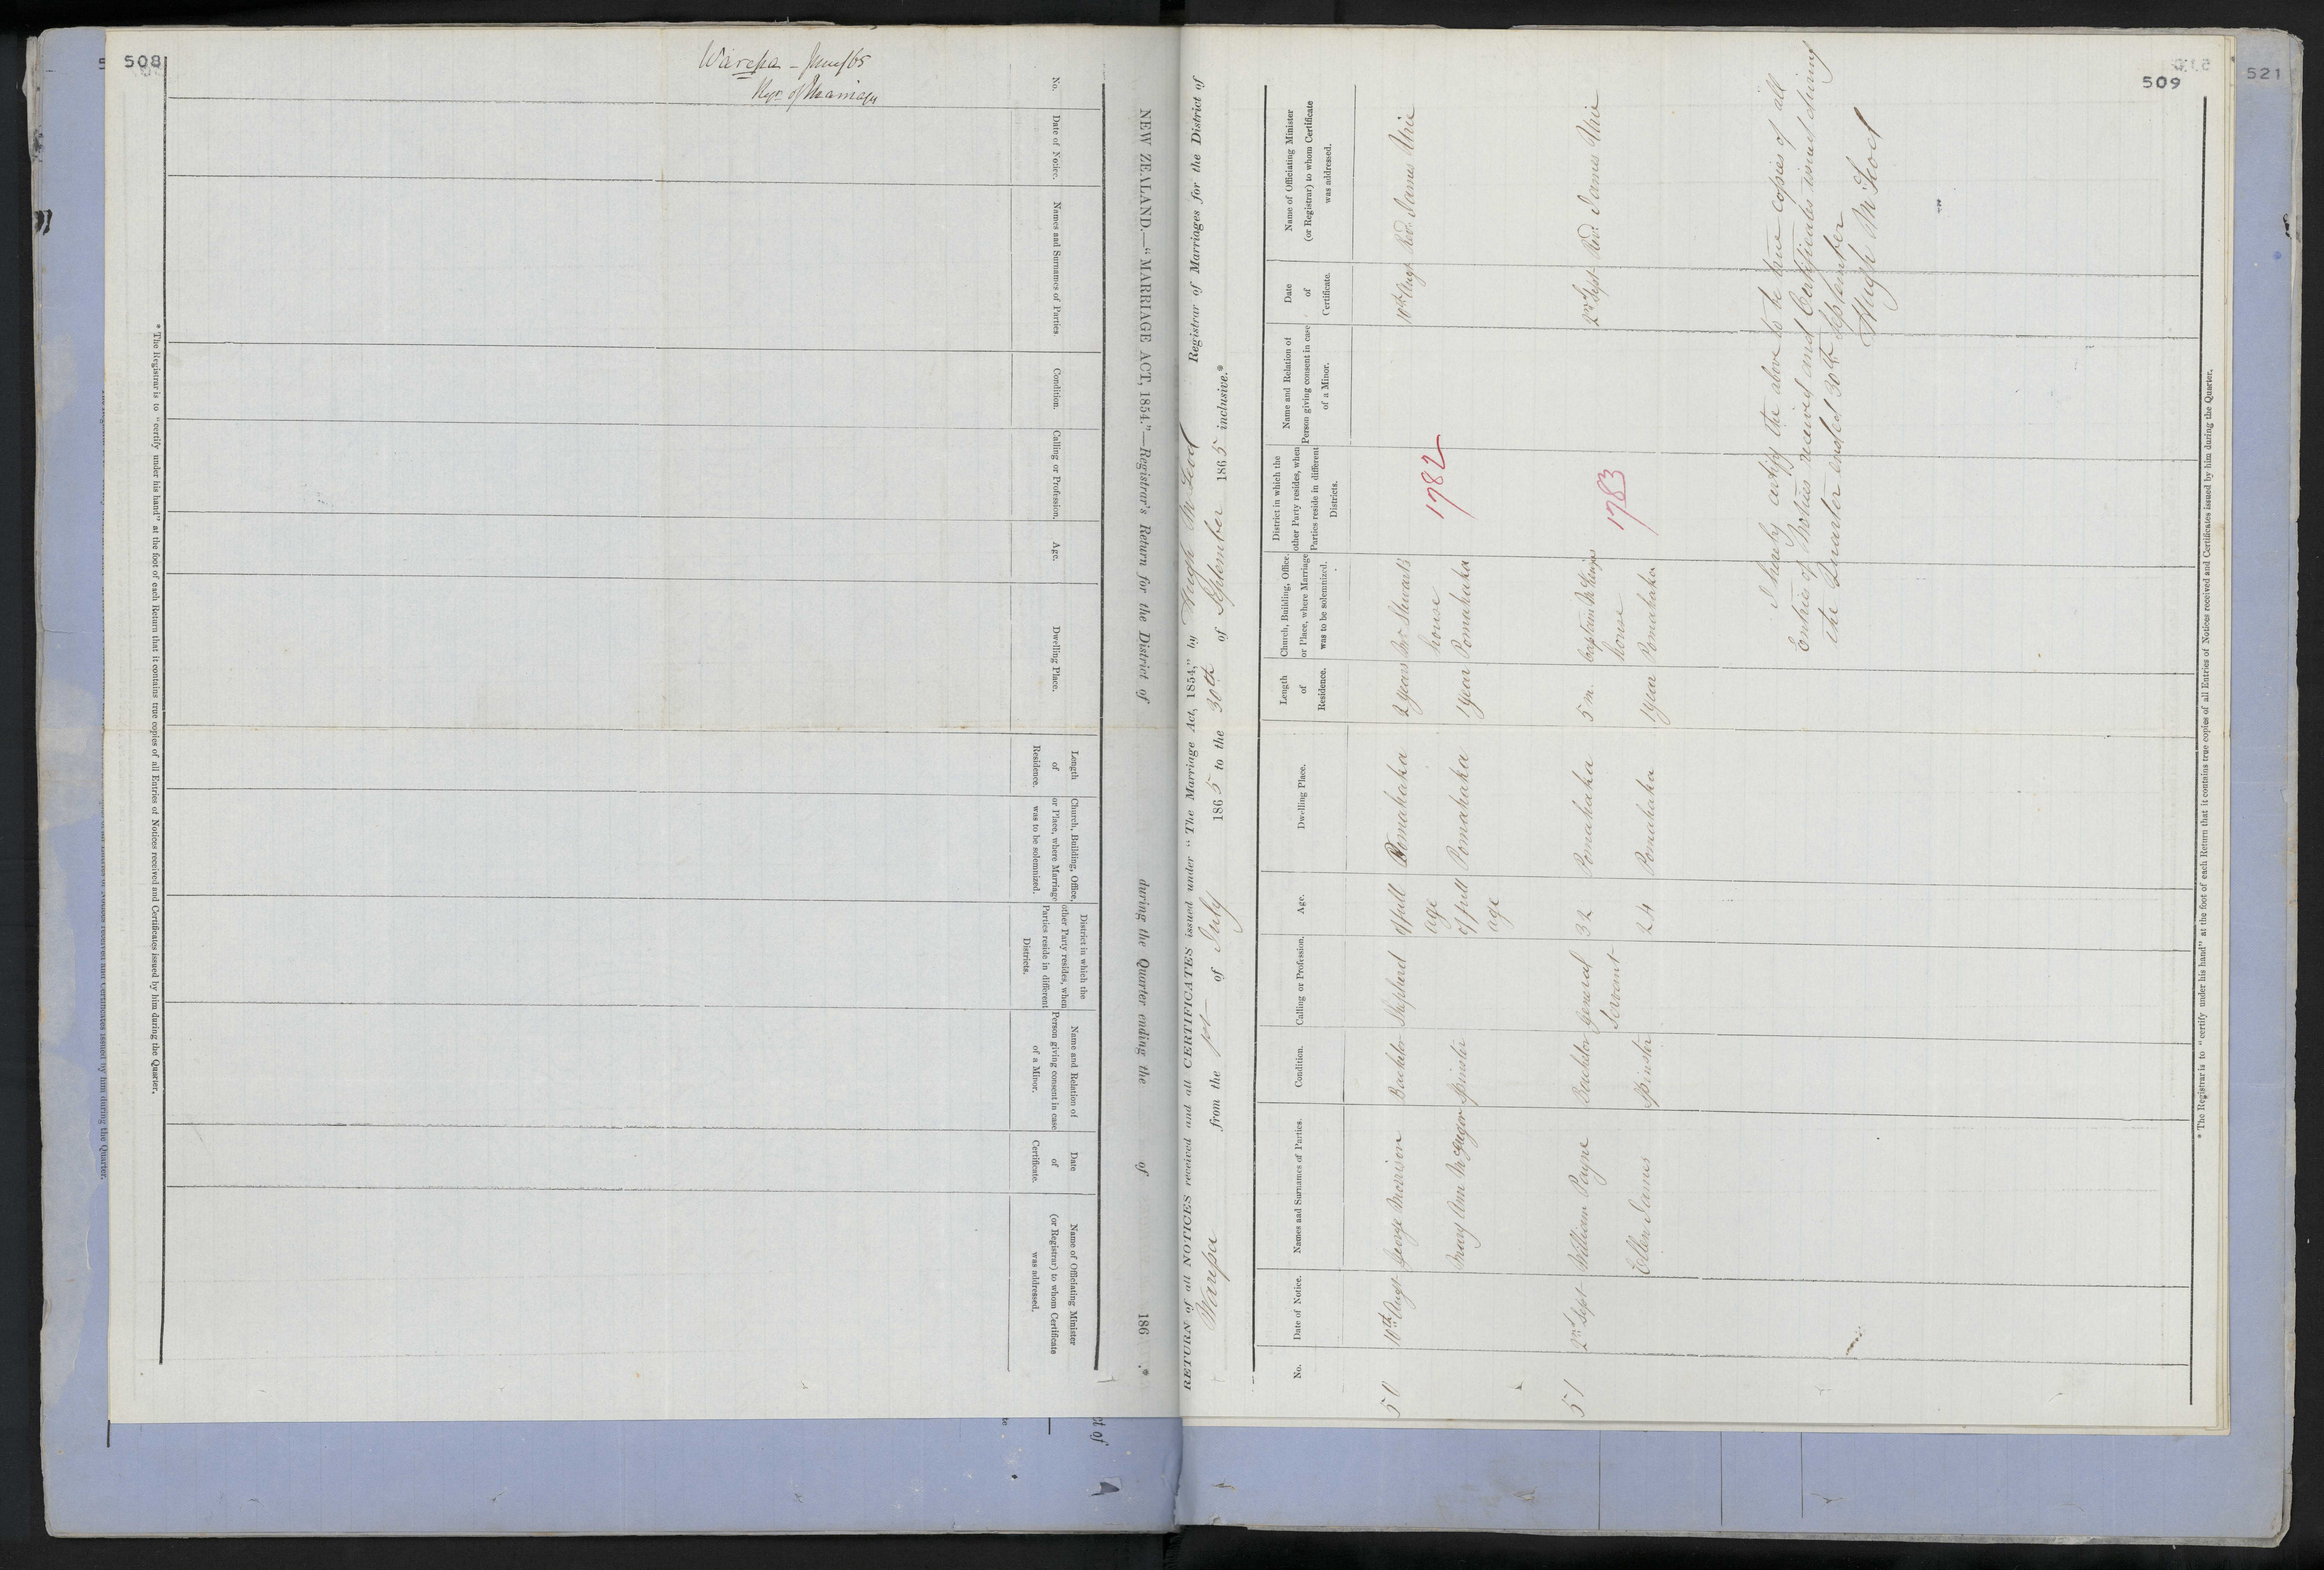 508
Warepa - June/65
Regr of Marriages
NEW ZEALAND.—"MARRIAGE ACT, 1854."—Registrar's Return for the District of during the Quarter ending the of 186 .*
No.
Date of Notice.
Names and Surnames of Parties
Condition.
Calling or Profession.
Age.
Dwelling Place.
Length
of
Residence.
Church, Building, Office,
or Place, where Marriage
was to be solemnized.
District in which the
other Party resides, when
Parties reside in different
Districts.
Name and Relation of
Person giving consent in case
of a Minor.
Date
of
Certificate.
Name of Officiating Minister
(or Registrar) to whom Certificate
was addressed.
* The Registrar is to "certify under his hand" at the foot of each Return that it contains true copies of all Entries of Notices received and Certificates issued by him during the Quarter.
509
521
RETURN of all NOTICES received and all CERTIFICATES issued under "The Marriage Act, 1854," by Hugh McLeod Registrar of Marriages for the District of
Warepa from the 1st of July 1865 to the 30th of September 1865 inclusive.*
No.
Date of Notice.
Names and Surnames of Parties.
Condition.
Calling or Profession.
Age.
Dwelling Place.
Length
of
Residence.
Church, Building, Office,
or Place, where Marriage
was to be solemnized.
District in which the
other Party resides, when
Parties reside in different
Districts.
Name and Relation of
Person giving consent in case
of a Minor.
Date
of
Certificate.
Name of Officiating Minister
(or Registrar) to whom Certificate
was addressed.
50 10th Augt George Morrison Bachelor Shepherd of full Pomahaka 2 years Mr Stuart's 10th Augt Revd. James Urie
age house 1782
Mary Ann McGregor Spinster of full Pomahaka 1 year Pomahaka
age
51 2nd Sept William Payne Bachelor General 32 Pomahaka 5 m. Captain 2nd Sept Revd. James Urie
Servant house 1783
Ellen James Spinster 24 Pomahaka 1 year Pomahaka
I hereby certify the above to be true copies of all
Entries of Notices received and Certificates issued during
the Quarter ended 30th September
Hugh McLeod
* The Registrar is to "certify under his hand" at the foot of each Return that it contains true copies of all Entries of Notices received and Certificates issued by him during the Quarter.